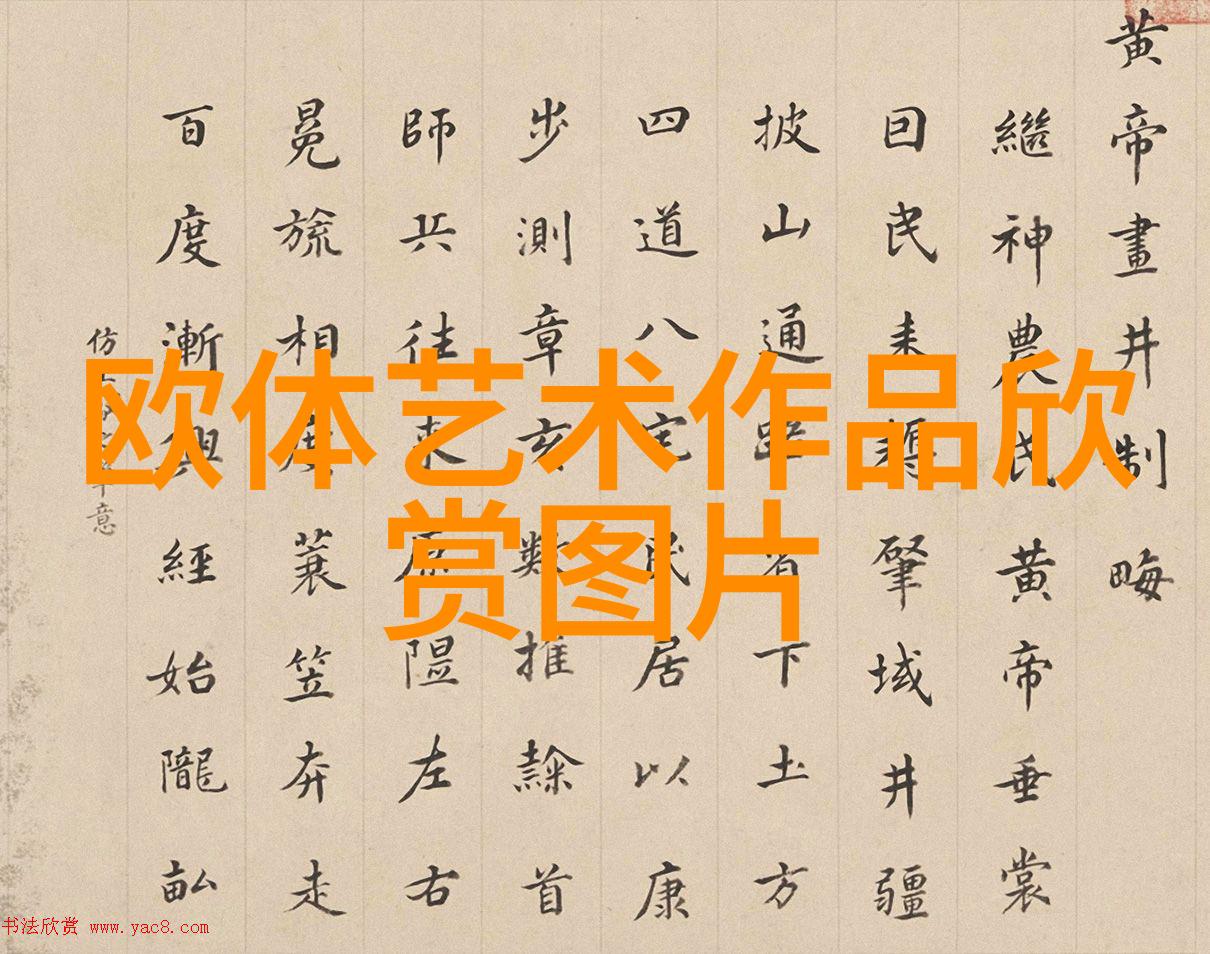 欧体艺术作品欣
赏图片
黄帝畫井制畮
繼神農氏黄帝垂裳
囙民耒耨肇域井疆
披山通省下土方
四道八宅民居以康
步測章亥數推隸首
師兵往來原隰左右
冕旒相度蓑笠奔走
百度漸興經始隴畝
仿意
书法欣赏 www.yac8.com